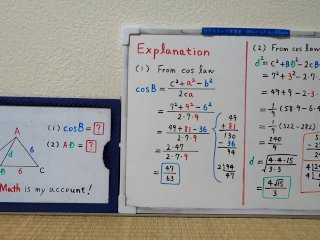 A
d
6
6
C
(1) cosB = ?
(2) AD = ?
Math is my account!
Explanation
(1) From cos law
cosB = c²+a²-b² / 2ca
= 7²+9²-6² / 2·7·9
= 49+81-36 / 2·7·9
= 2·47 / 2·7·9
= 47 / 63
49
+ 81
130
- 36
94
2 ) 94
47
(2) From cos law
d² = c²+BD²-2cB
= 7²+3²-2·7
= 49+9-2·3
= 1/9 (58·9-6·4
= 1/9 (522-282)
= 240 / 9
d = √4·4·15 / 3²
= 4√15 / 3